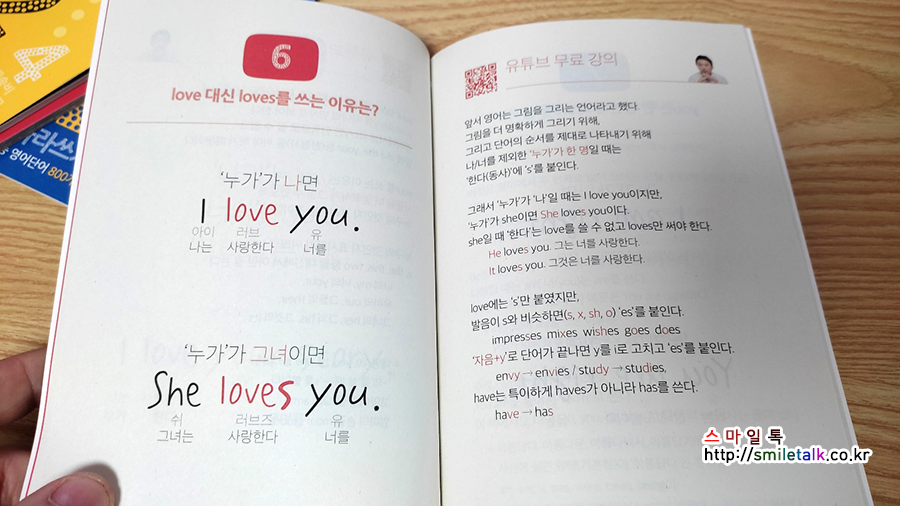 4
영어단어 800
6
love 대신 loves를 쓰는 이유는?
'누가'가 나면
I love you.
아이 러브 유
나는 사랑한다 너를
'누가'가 그녀이면
She loves you.
쉬 러브즈 유
그녀는 사랑한다 너를
유튜브 무료 강의
앞서 영어는 그림을 그리는 언어라고 했다.
그림을 더 명확하게 그리기 위해,
그리고 단어의 순서를 제대로 나타내기 위해
나/너를 제외한 '누가'가 한 명일 때는
'한다(동사)'에 's'를 붙인다.
그래서 '누가'가 '나'일 때는 I love you이지만,
'누가'가 she이면 She loves you이다.
she일 때 '한다'는 love를 쓸 수 없고 loves만 써야 한다.
He loves you. 그는 너를 사랑한다.
It loves you. 그것은 너를 사랑한다.
love에는 's'만 붙였지만,
발음이 s와 비슷하면(s, x, sh, o) 'es'를 붙인다.
impresses mixes wishes goes does
'자음+y'로 단어가 끝나면 y를 i로 고치고 'es'를 붙인다.
envy → envies / study → studies,
have는 특이하게 haves가 아니라 has를 쓴다.
have → has
스마일톡
http://smiletalk.co.kr